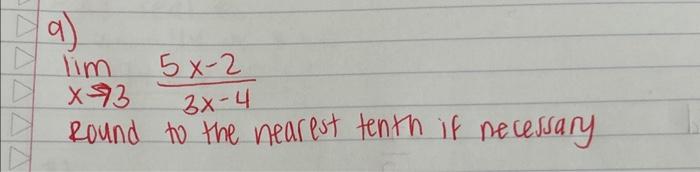 a)
lim 5x-2
x→3 3x-4
Round to the nearest tenth if necessary